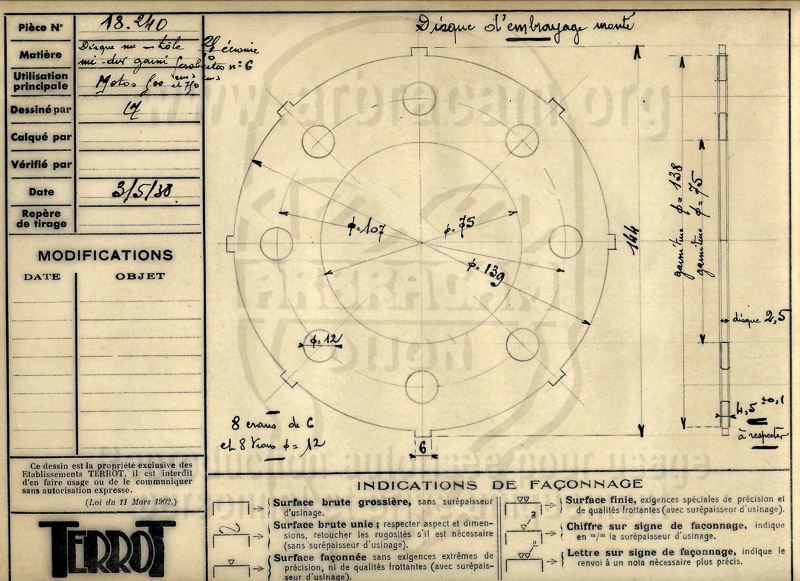 Pièce N° 18.240
Matière Disque nu - tôle
mi-dur garni ferodo n° 6
Utilisation
principale Motos 500 et 750
Dessiné par
Calqué par
Vérifié par
Date 3/5/38
Repère
de tirage
MODIFICATIONS
DATE OBJET
Disque d'embrayage monté
φ=107
φ=75
φ=139
φ=12
8 crans de 6
et 8 trous φ=12
6
144
garniture φ=138
garniture φ=75
disque 2,5
4,5 ±0,1
à respecter
www.arbracam.org
ARBRACAM
Ce dessin est la propriété exclusive des
Etablissements TERROT, il est interdit
d'en faire usage ou de le communiquer
sans autorisation expresse.
(Loi du 11 Mars 1902.)
TERROT
INDICATIONS DE FAÇONNAGE
Surface brute grossière, sans surépaisseur
d'usinage.
Surface brute unie; respecter aspect et dimen-
sions, retoucher les rugosités s'il est nécessaire
(sans surépaisseur d'usinage).
Surface façonnée sans exigences extrêmes de
précision, ni de qualités frottantes (avec surépais-
seur d'usinage).
Surface finie, exigences spéciales de précision et
de qualités frottantes (avec surépaisseur d'usinage).
2
Chiffre sur signe de faconnage, indique
en m/m la surépaisseur d'usinage.
n
Lettre sur signe de façonnage, indique le
renvoi à un nota nécessaire plus précis.